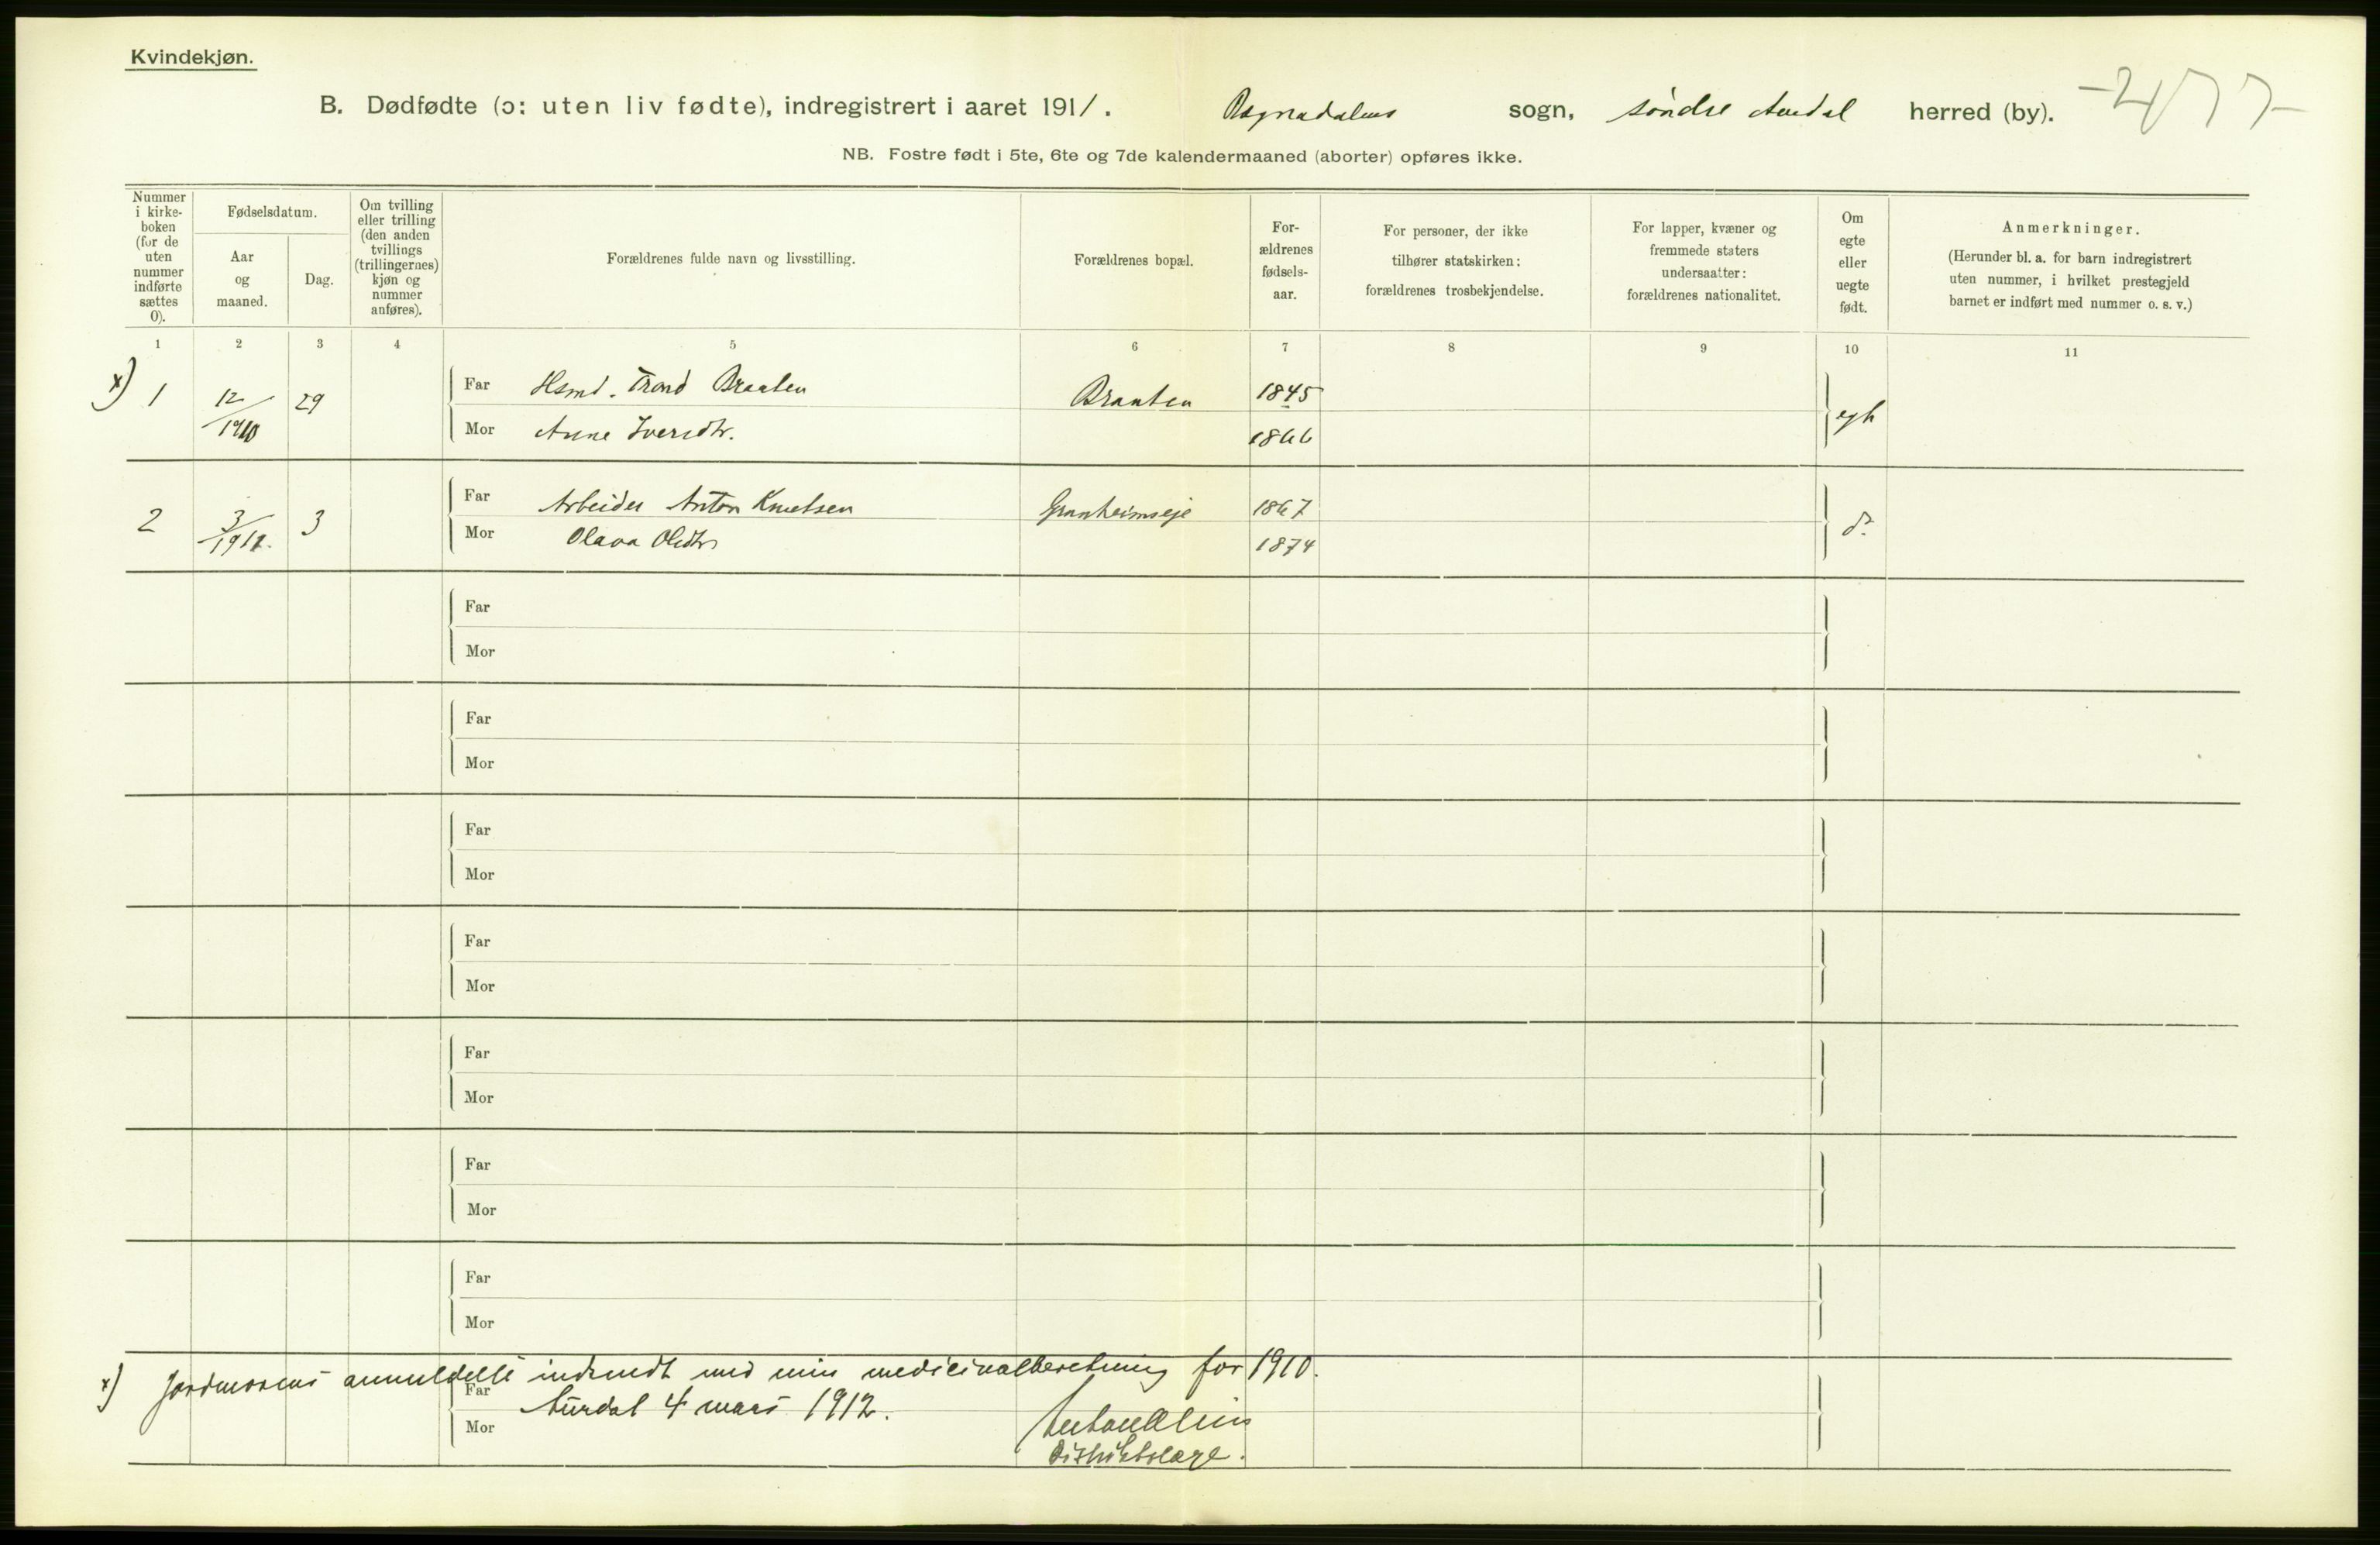 Kvindekjøn.
B. Dødfødte (ɔ: uten liv fødte), indregistrert i aaret 1911. Bagnadalens sogn, søndre Aurdal herred (by). -277-
NB. Fostre født i 5te, 6te og 7de kalendermaaned (aborter) opføres ikke.
Nummer i kirke-boken (for de uten nummer indførte sættes 0).
Fødselsdatum.
Aar og maaned.
Dag.
Om tvilling eller trilling (den anden tvillings (trillingernes) kjøn og nummer anføres).
Forældrenes fulde navn og livsstilling.
Forældrenes bopæl.
For-ældrenes fødsels-aar.
For personer, der ikke tilhører statskirken: forældrenes trosbekjendelse.
For lapper, kvæner og fremmede staters undersaatter: forældrenes nationalitet.
Om egte eller uegte født.
Anmerkninger.
(Herunder bl. a. for barn indregistrert uten nummer, i hvilket prestegjeld barnet er indført med nummer o. s. v.)
1 2 3 4 5 6 7 8 9 10 11
x) 1 12/1910 29 Far Hsmd. Trond Braaten Braaten 1845 egte
Mor Anne Iversdtr. 1866
2 3/1911. 3 Far Arbeider Anton Knutsen Granheimseje 1867 do.
Mor Olava Olsdtr 1874
Far
Mor
Far
Mor
Far
Mor
Far
Mor
Far
Mor
Far
Mor
Far
Mor
x) Jordmorens anmeldelse indsendt med min medicinalberetning for 1910.
Far Aurdal 4 mars 1912.
Mor
Distriktslæge.